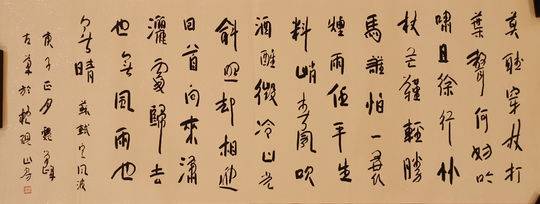 莫聽穿林打
葉聲何妨吟
嘯且徐行竹
杖芒鞋輕勝
馬誰怕一蓑
煙雨任平生
料峭春風吹
酒醒微冷山頭
斜照却相迎
回首向來瀟
灑處歸去
也無風雨也
無晴 蘇軾定風波
庚子正月
於山房